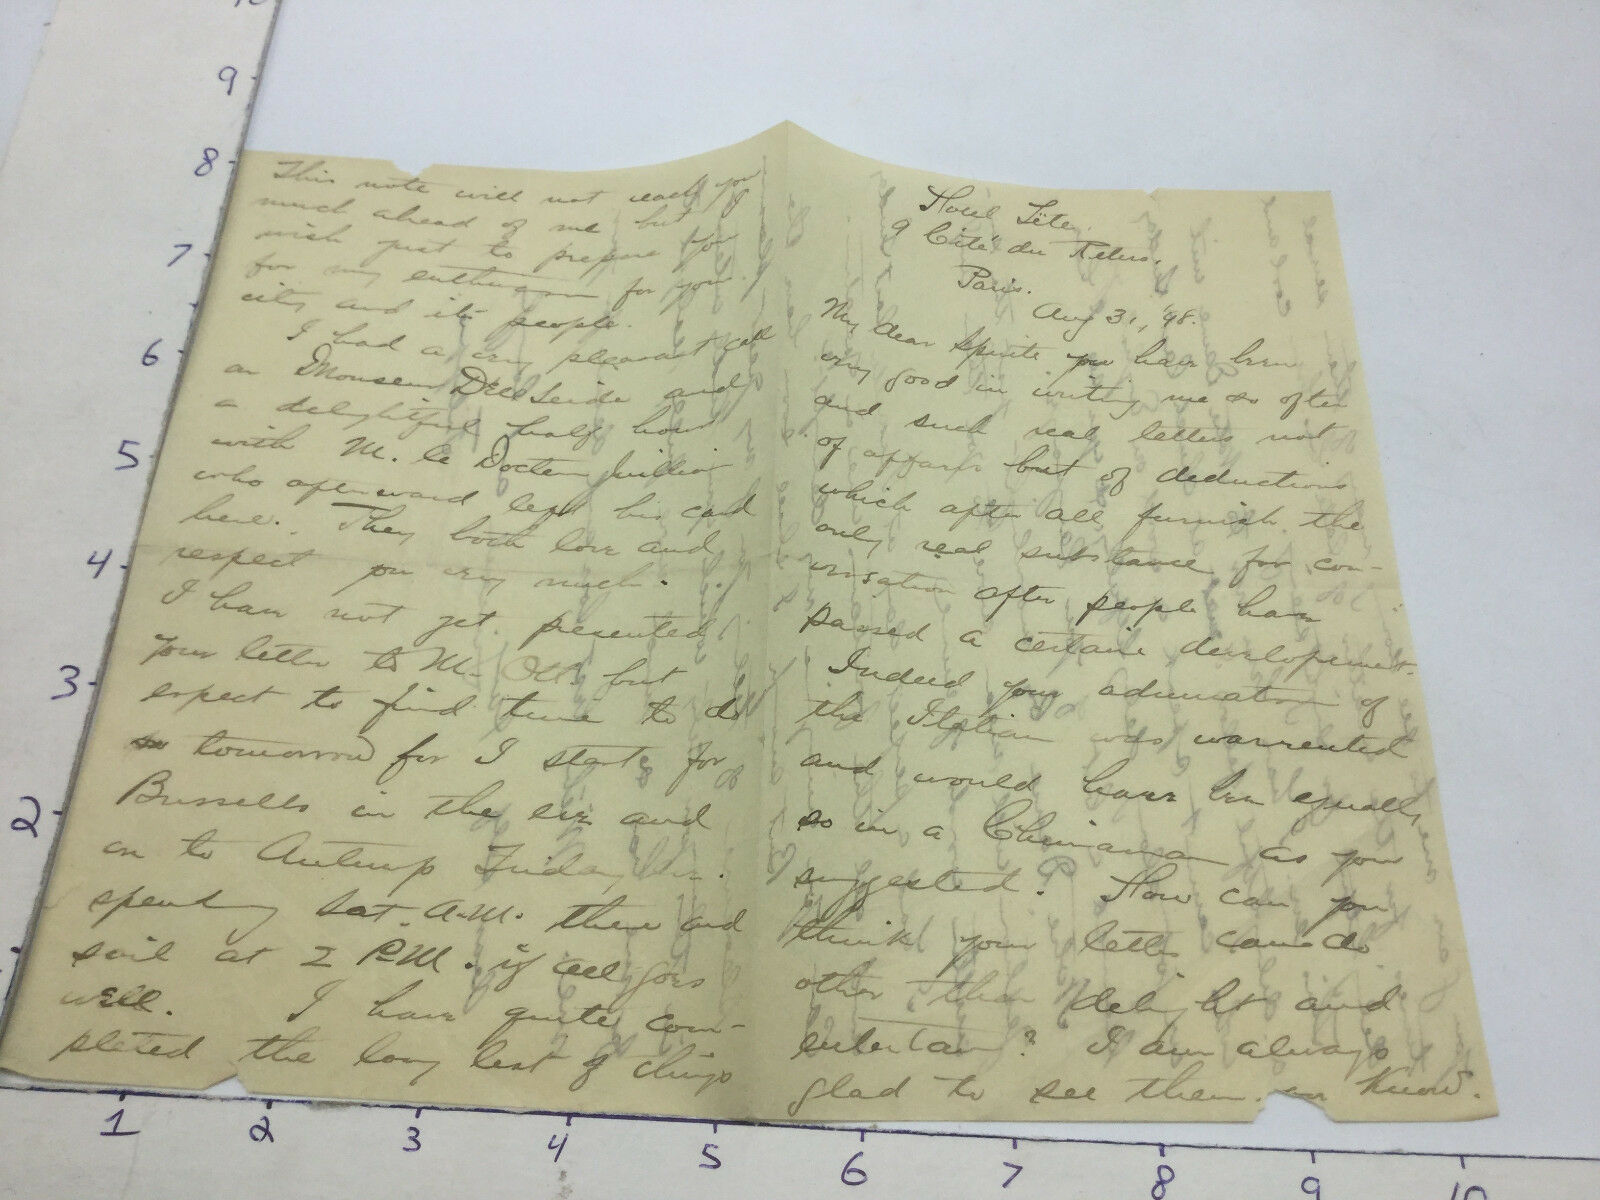 Hotel
9 Cité du Retiro.
Paris.
Aug 31, '98.
My dear you have been
very good in writing me so often
and such real letters not
of affairs but of deductions
which after all furnish the
only real substance for con-
versation after people have
passed a certain development.
Indeed your admiration of
the was warrented
and would have been equally
so in a Chinaman as you
suggested. How can you
think your letters can do
other than delight and
entertain? I am always
glad to see them. you know.
This note will not reach you
much ahead of me but I
wish just to prepare you
for my enthusiasm for your
city and its people.
I had a very pleasant call
on and
a delightful half hour
with M. le Docteur
who afterward left his card
here. They both love and
respect you very much.
I have not yet presented
your letter to M. but
expect to find time to do
so tomorrow for I start for
Brussells in the eve and
on to Antwerp Friday
spending Sat. A.M. there and
sail at 2 P.M. if all goes
well. I have quite com-
pleted the long list of things
10
9
8
7
6
5
4
3
2
1
2
3
4
5
6
7
8
9
10